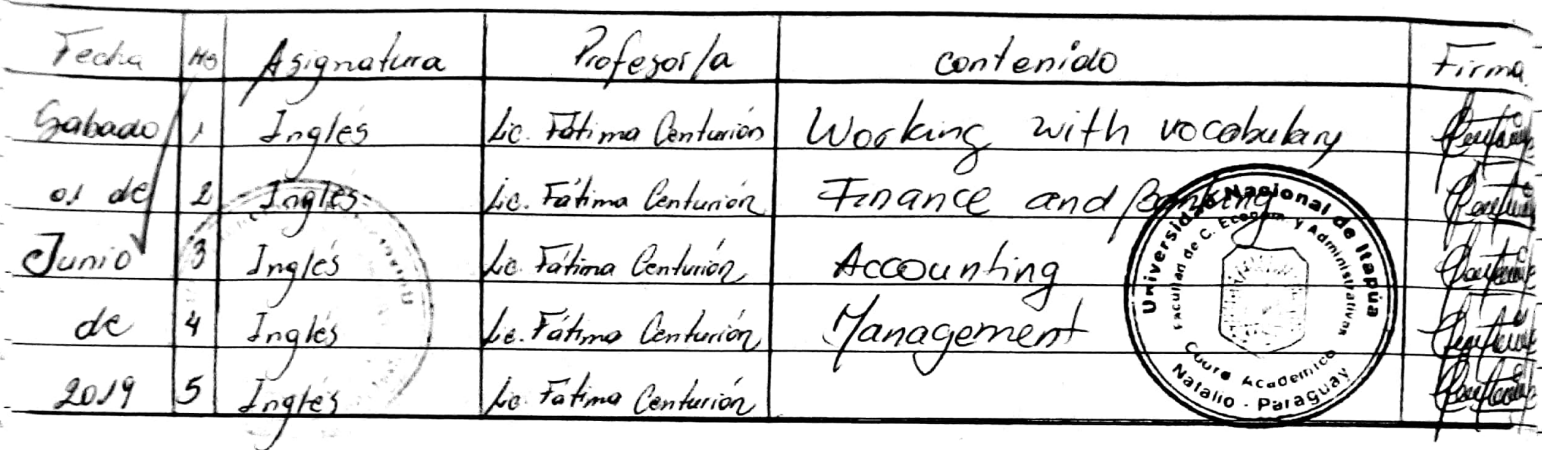 Fecha Hs Asignatura Profesor/a contenido Firma
Sabado 1 Inglés Lic. Fátima Centurión Working with vocabulary
01 de 2 Inglés Lic. Fátima Centurión Finance and Banking
Junio 3 Inglés Lic. Fátima Centurión Accounting
de 4 Inglés Lic. Fátima Centurión Management
2019 5 Inglés Lic. Fátima Centurión
Universidad Nacional de Itapúa
Facultad de C. Econom y Administrativas
Academico
Natalio - Paraguay